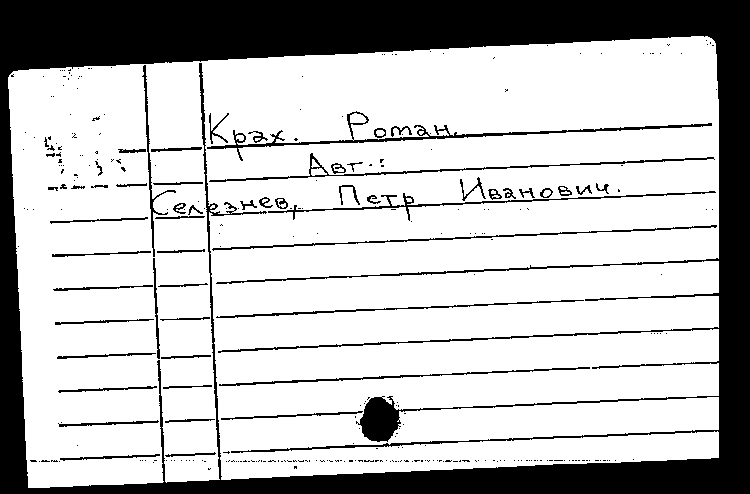 Крах. Роман.
Авт.:
Селезнев, Петр Иванович.